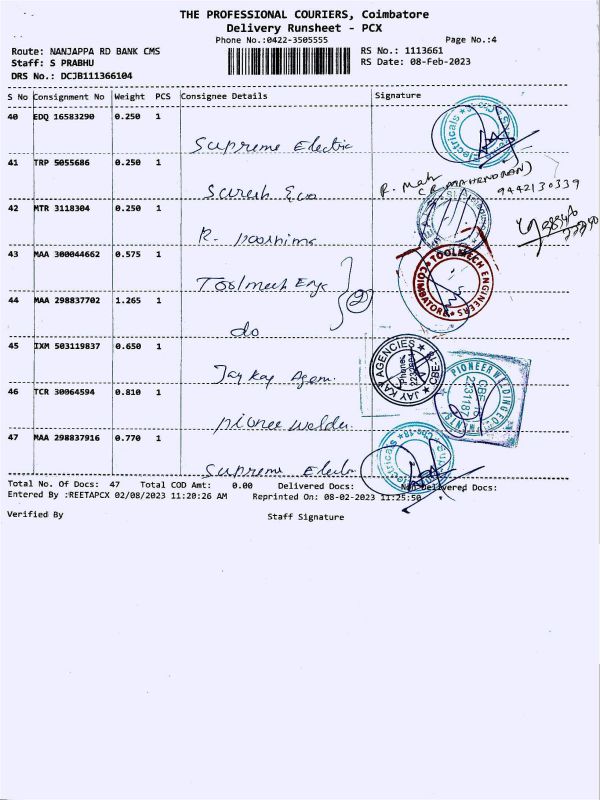 THE PROFESSIONAL COURIERS, Coimbatore
Delivery Runsheet - PCX
Phone No.:0422-3505555
Page No.:4
Route: NANJAPPA RD BANK CMS
RS No.: 1113661
Staff: S PRABHU
RS Date: 08-Feb-2023
DRS No.: DCJB111366104
S No Consignment No Weight PCS Consignee Details Signature
40 EDQ 16583290 0.250 1
Supreme Electric
Electricals
41 TRP 5055686 0.250 1
R. Mah
(R. MAHENDRAN)
9442130339
Suresh
42 MTR 3118304 0.250 1
R. Poorhima
43 MAA 300044662 0.575 1
Toolmech Engs
2
TOOLMECH ENGINEERS
COIMBATORE
44 MAA 298837702 1.265 1
do
45 IXM 503119837 0.650 1
Jay Kay Agen.
JAY KAY AGENCIES
Phone:
CBE-
46 TCR 30064594 0.810 1
pionee welder
PIONEER WELDING
CBE
2231187
47 MAA 298837916 0.770 1
Supreme Electr
Electricals
Total No. Of Docs: 47 Total COD Amt: 0.00 Delivered Docs: Non-Delivered Docs:
Entered By :REETAPCX 02/08/2023 11:20:26 AM Reprinted On: 08-02-2023 11:25:50
Verified By
Staff Signature